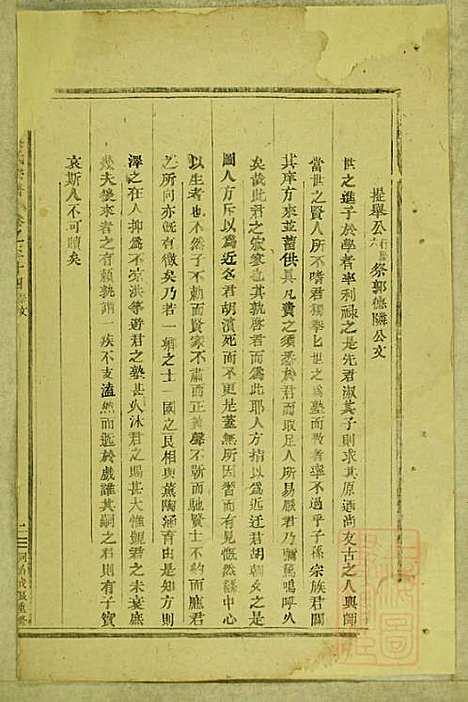 提舉公行六祭郭德隣公文
世之進子於學者率利祿之是先君淑其子則求其原遡尚友古之人與師
當世之賢人所不嗜君獨挙七世之為塾而教者率不過乎子孫宗族君闢
其庠方來並蓄供具凡費之須悉於君而取足人所易厭君乃
矣哉此君之寂寥也其孰啓君而為此耶人方指以為近迂君胡朝夕之是
圖人方斥以為近名君胡濵死而不更是蓋無所因習而有見慨然發中心
以生者也不然子不勅而賢家不肅而正義聲不勒而馳賢士不約而應君
之所同亦旣有徴矣乃若一鄉之士一國之良相與薫陶涵育由是知方則
澤之在人抑為不宏洪等遊君之塾甚久沐君之賜甚大惟覬君之未衰庶
幾夫後來者之有頼孰謂一疾不支溘然而逝於戲誰其嗣之君則有子實
哀斯人不可贖矣